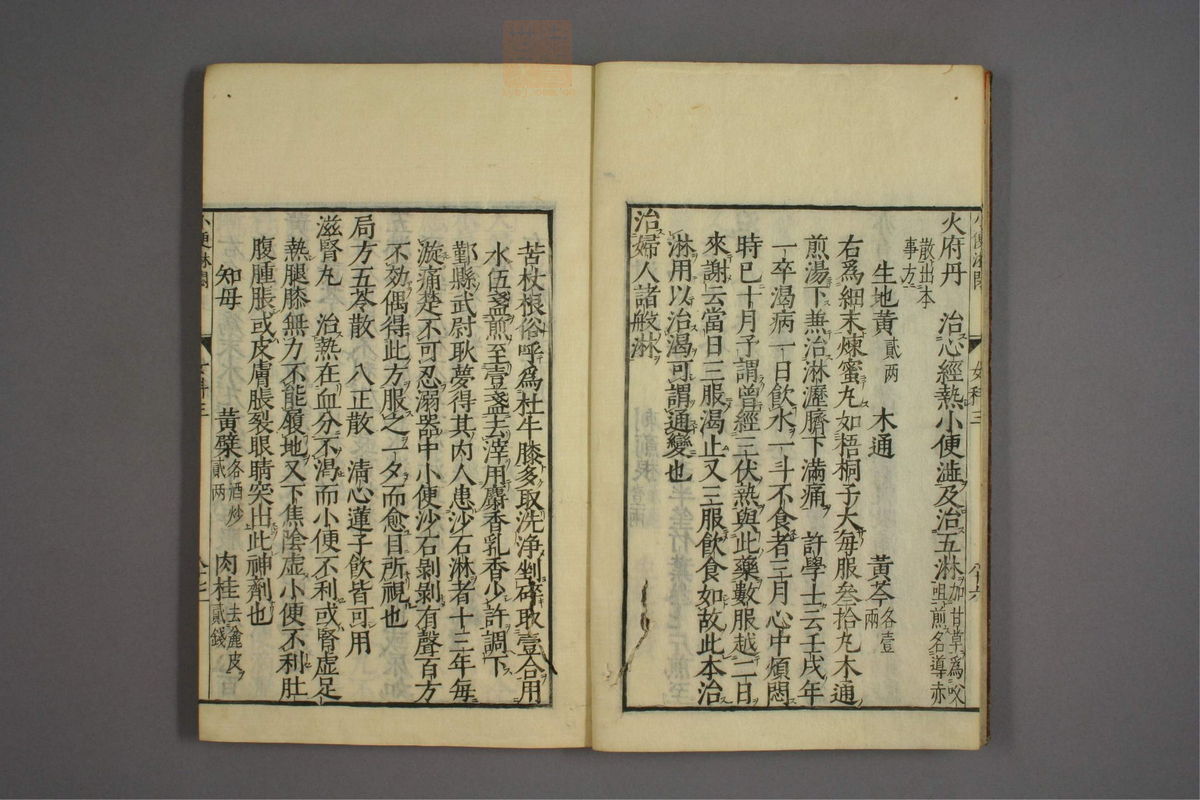 火府丹　治心經熱小便澁及治五淋加甘草爲㕮
咀煎名導赤
散出本
事方
生地黃貳两　木通　黃芩各壹
兩
右爲細末煉蜜丸如梧桐子大每服叁拾丸木通
煎湯下兼治淋瀝臍下滿痛　許學士云壬戌年
一卒渴病一日飲水一斗不食者三月心中煩悶
時已十月予謂曾經三伏熱與此藥數服越二日
來謝云當日三服渴止又三服飲食如故此本治
淋用以治渴可謂通變也
治婦人諸般淋
苦杖根俗呼爲杜牛膝多取洗淨剉碎取壹合用
水伍盞煎至壹盞去滓用麝香乳香少許調下
鄞縣武尉耿夢得其内人患沙石淋者十三年每
漩痛楚不可忍溺器中小便沙石剝剝有聲百方
不効偶得此方服之一夕而愈目所視也
局方五苓散　八正散　清心蓮子飲皆可用
滋腎丸　治熱在血分不渴而小便不利或腎虛足
熱腿膝無力不能履地又下焦陰虛小便不利肚
腹腫脹或皮膚脹裂眼睛突出此神劑也
知母　黃檗各酒炒
貳两　肉桂去麄皮
貳錢
小便淋閟